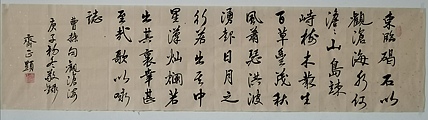 東臨碣石以
觀滄海水何
澹々山島竦
峙樹木叢生
百草豐茂秋
風蕭瑟洪波
湧起日月之
行若出其中
星漢燦爛若
出其裏幸甚
至哉歌以咏
誌
曹操句觀滄海
庚子初冬敬錄
齊正顯